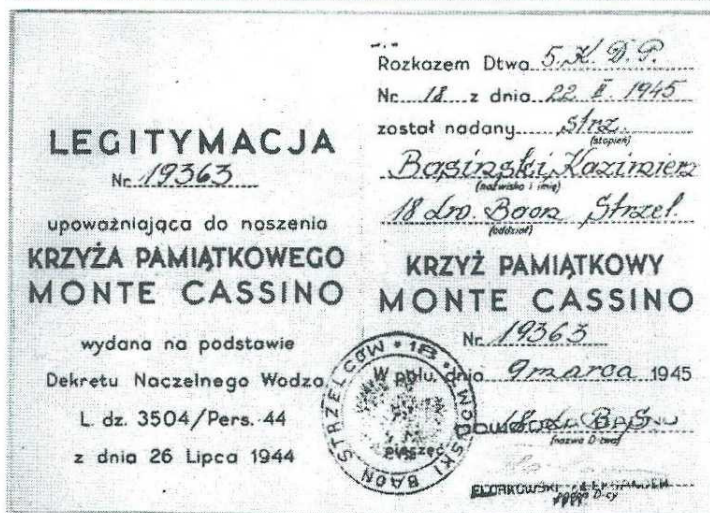 LEGITYMACJA
Nr. 19363
upoważniająca do noszenia
KRZYŻA PAMIĄTKOWEGO
MONTE CASSINO
wydana na podstawie
Dekretu Naczelnego Wodza
L. dz. 3504/Pers. 44
z dnia 26 Lipca 1944
Rozkazem Dtwa 5. K. D. P.
Nr. 18 z dnia 22. II. 1945
został nadany strz.
(stopień)
Basiński, Kazimierz
(nazwisko i imię)
18 Lw. Baon Strzel.
(oddział)
KRZYŻ PAMIĄTKOWY
MONTE CASSINO
Nr. 19363
W polu, dnia 9 marca 1945
18 LWOWSKI BAON STRZELCÓW
pieczęć
(nazwa D-twa)
podpis D-cy